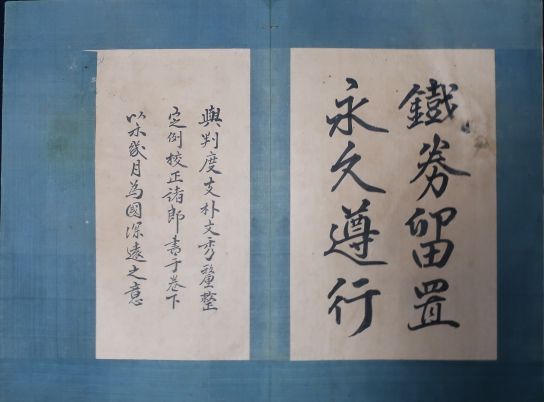 鐵券留置
永久遵行
與判度支朴文秀釐整
定例校正諸郎書于卷下
以 月為國深遠之意